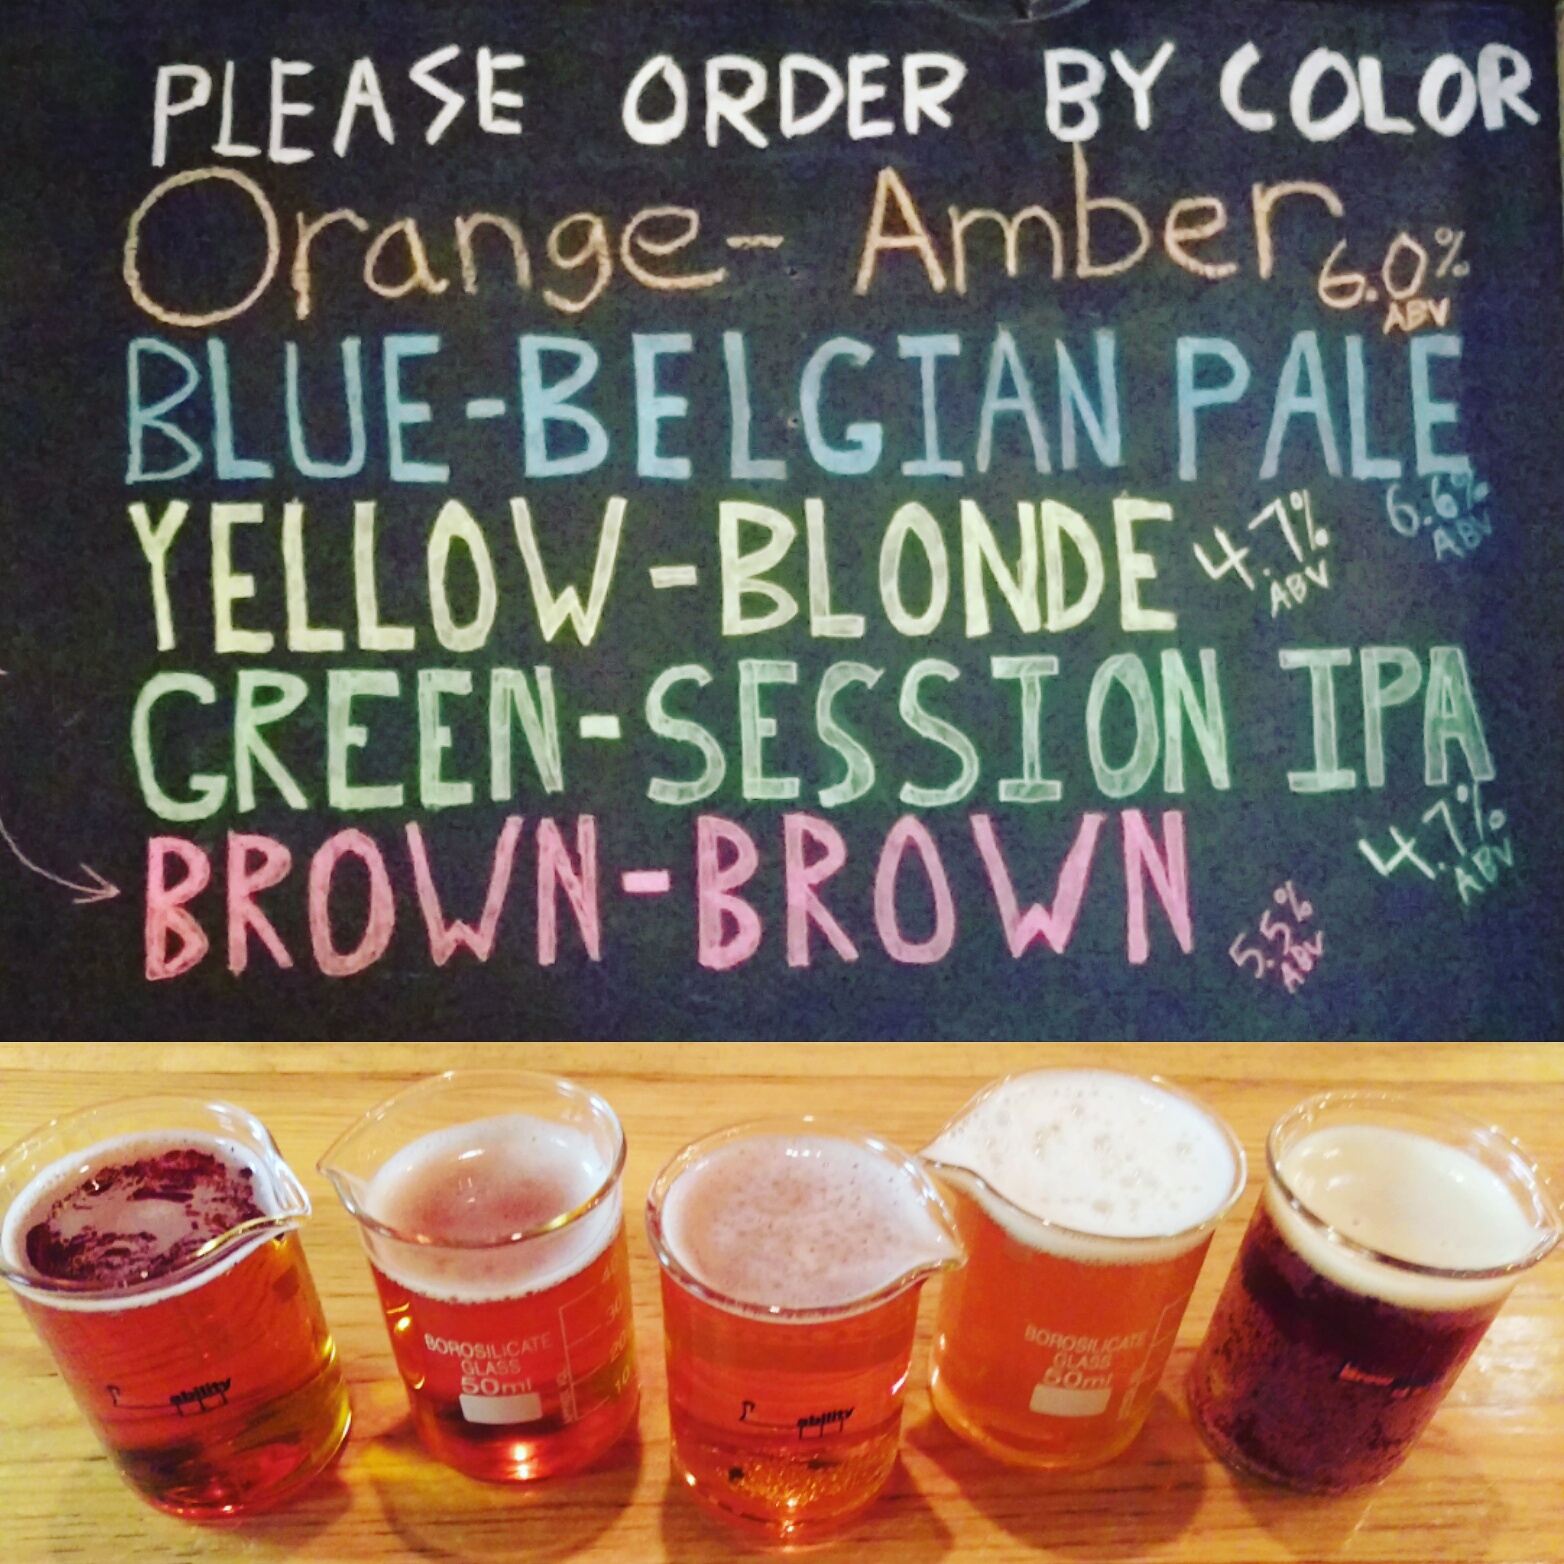 PLEASE ORDER BY COLOR
Orange - Amber 6.0%
ABV
BLUE-BELGIAN PALE
6.6%
ABV
YELLOW-BLONDE 4.7%
ABV
GREEN-SESSION IPA
4.7%
ABV
BROWN-BROWN 5.5%
ABV
ability
BOROSILICATE
GLASS
50ml
ability
BOROSILICATE
GLASS
50ml